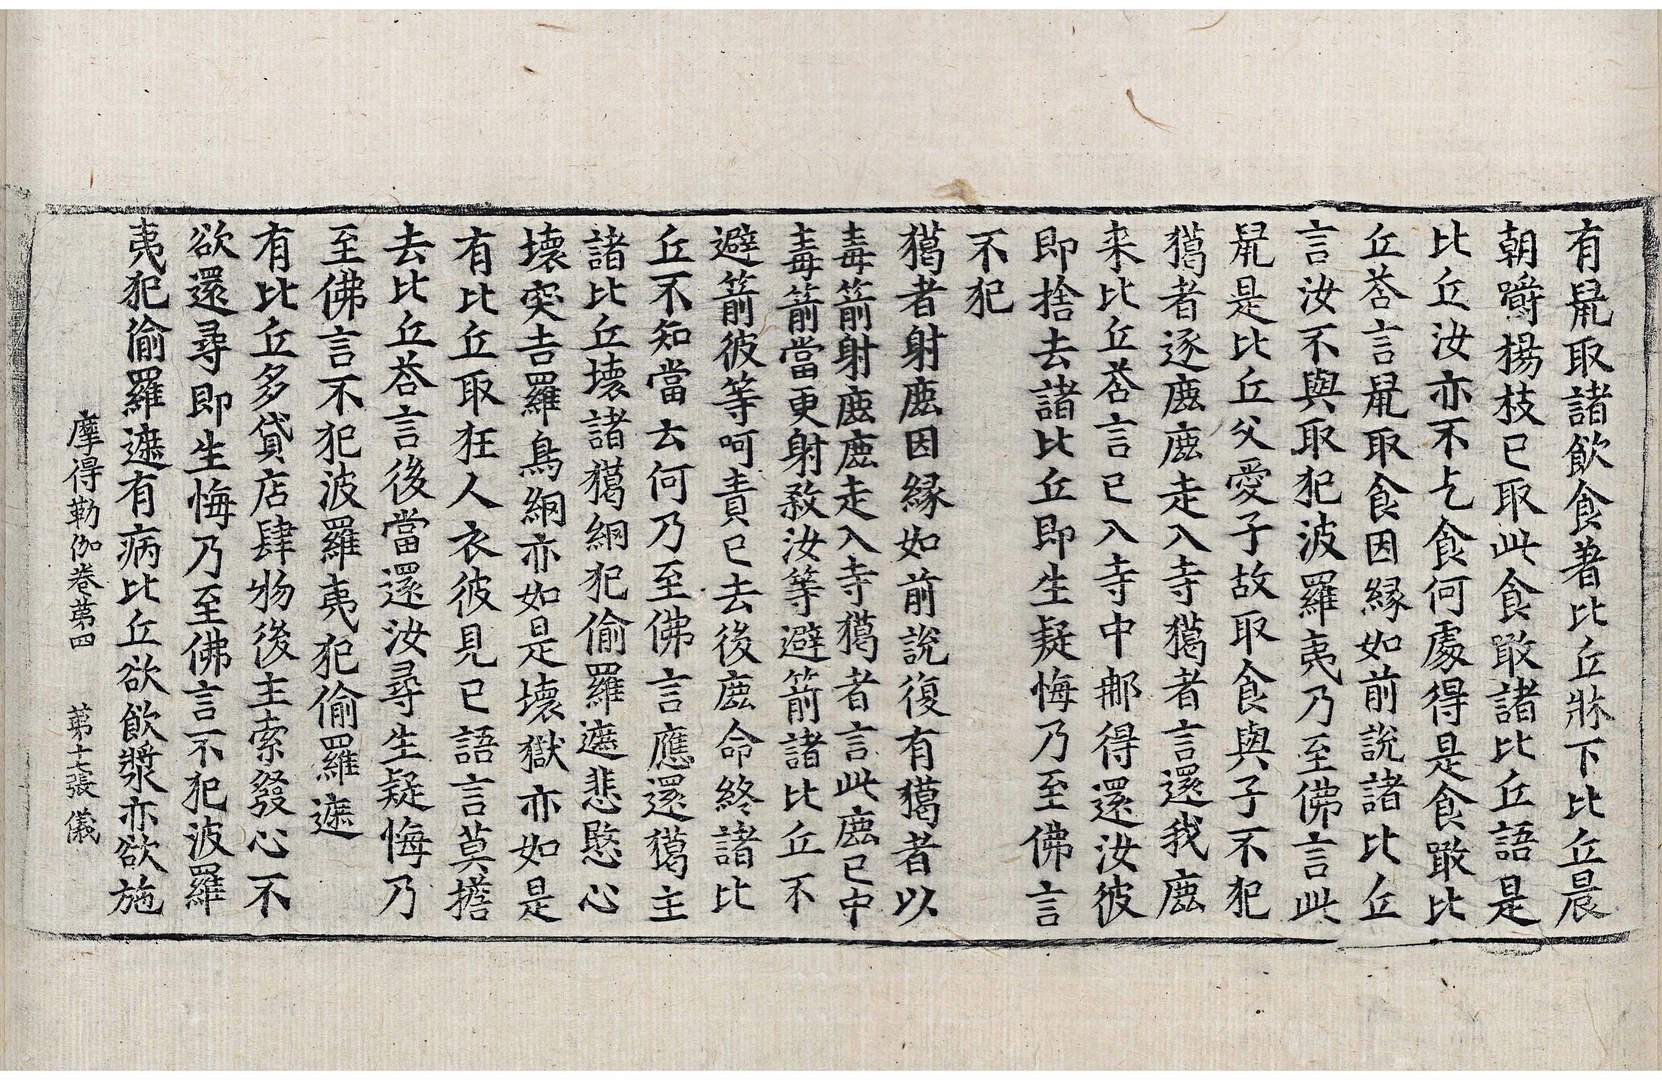 有鼠取諸飲食著比丘牀下比丘晨
朝嚼楊枝已取此食噉諸比丘語是
比丘汝亦不乞食何處得是食噉比
丘荅言鼠取食因緣如前說諸比丘
言汝不與取犯波羅夷乃至佛言此
鼠是比丘父愛子故取食與子不犯
獦者逐鹿鹿走入寺獦者言還我鹿
来比丘荅言已入寺中那得還汝彼
即捨去諸比丘即生疑悔乃至佛言
不犯
獦者射鹿因緣如前說復有獦者以
毒箭射鹿鹿走入寺獦者言此鹿已中
毒箭當更射殺汝等避箭諸比丘不
避箭彼等呵責已去後鹿命終諸比
丘不知當云何乃至佛言應還獦主
諸比丘壞諸獦網犯偷羅遮悲愍心
壞突吉羅鳥網亦如是壞獄亦如是
有比丘取狂人衣彼見已語言莫擔
去比丘荅言後當還汝尋生疑悔乃
至佛言不犯波羅夷犯偷羅遮
有比丘多貸店肆物後主索發心不
欲還尋即生悔乃至佛言不犯波羅
夷犯偷羅遮有病比丘欲飲漿亦欲施
摩得勒伽卷第四 第十七張 儀